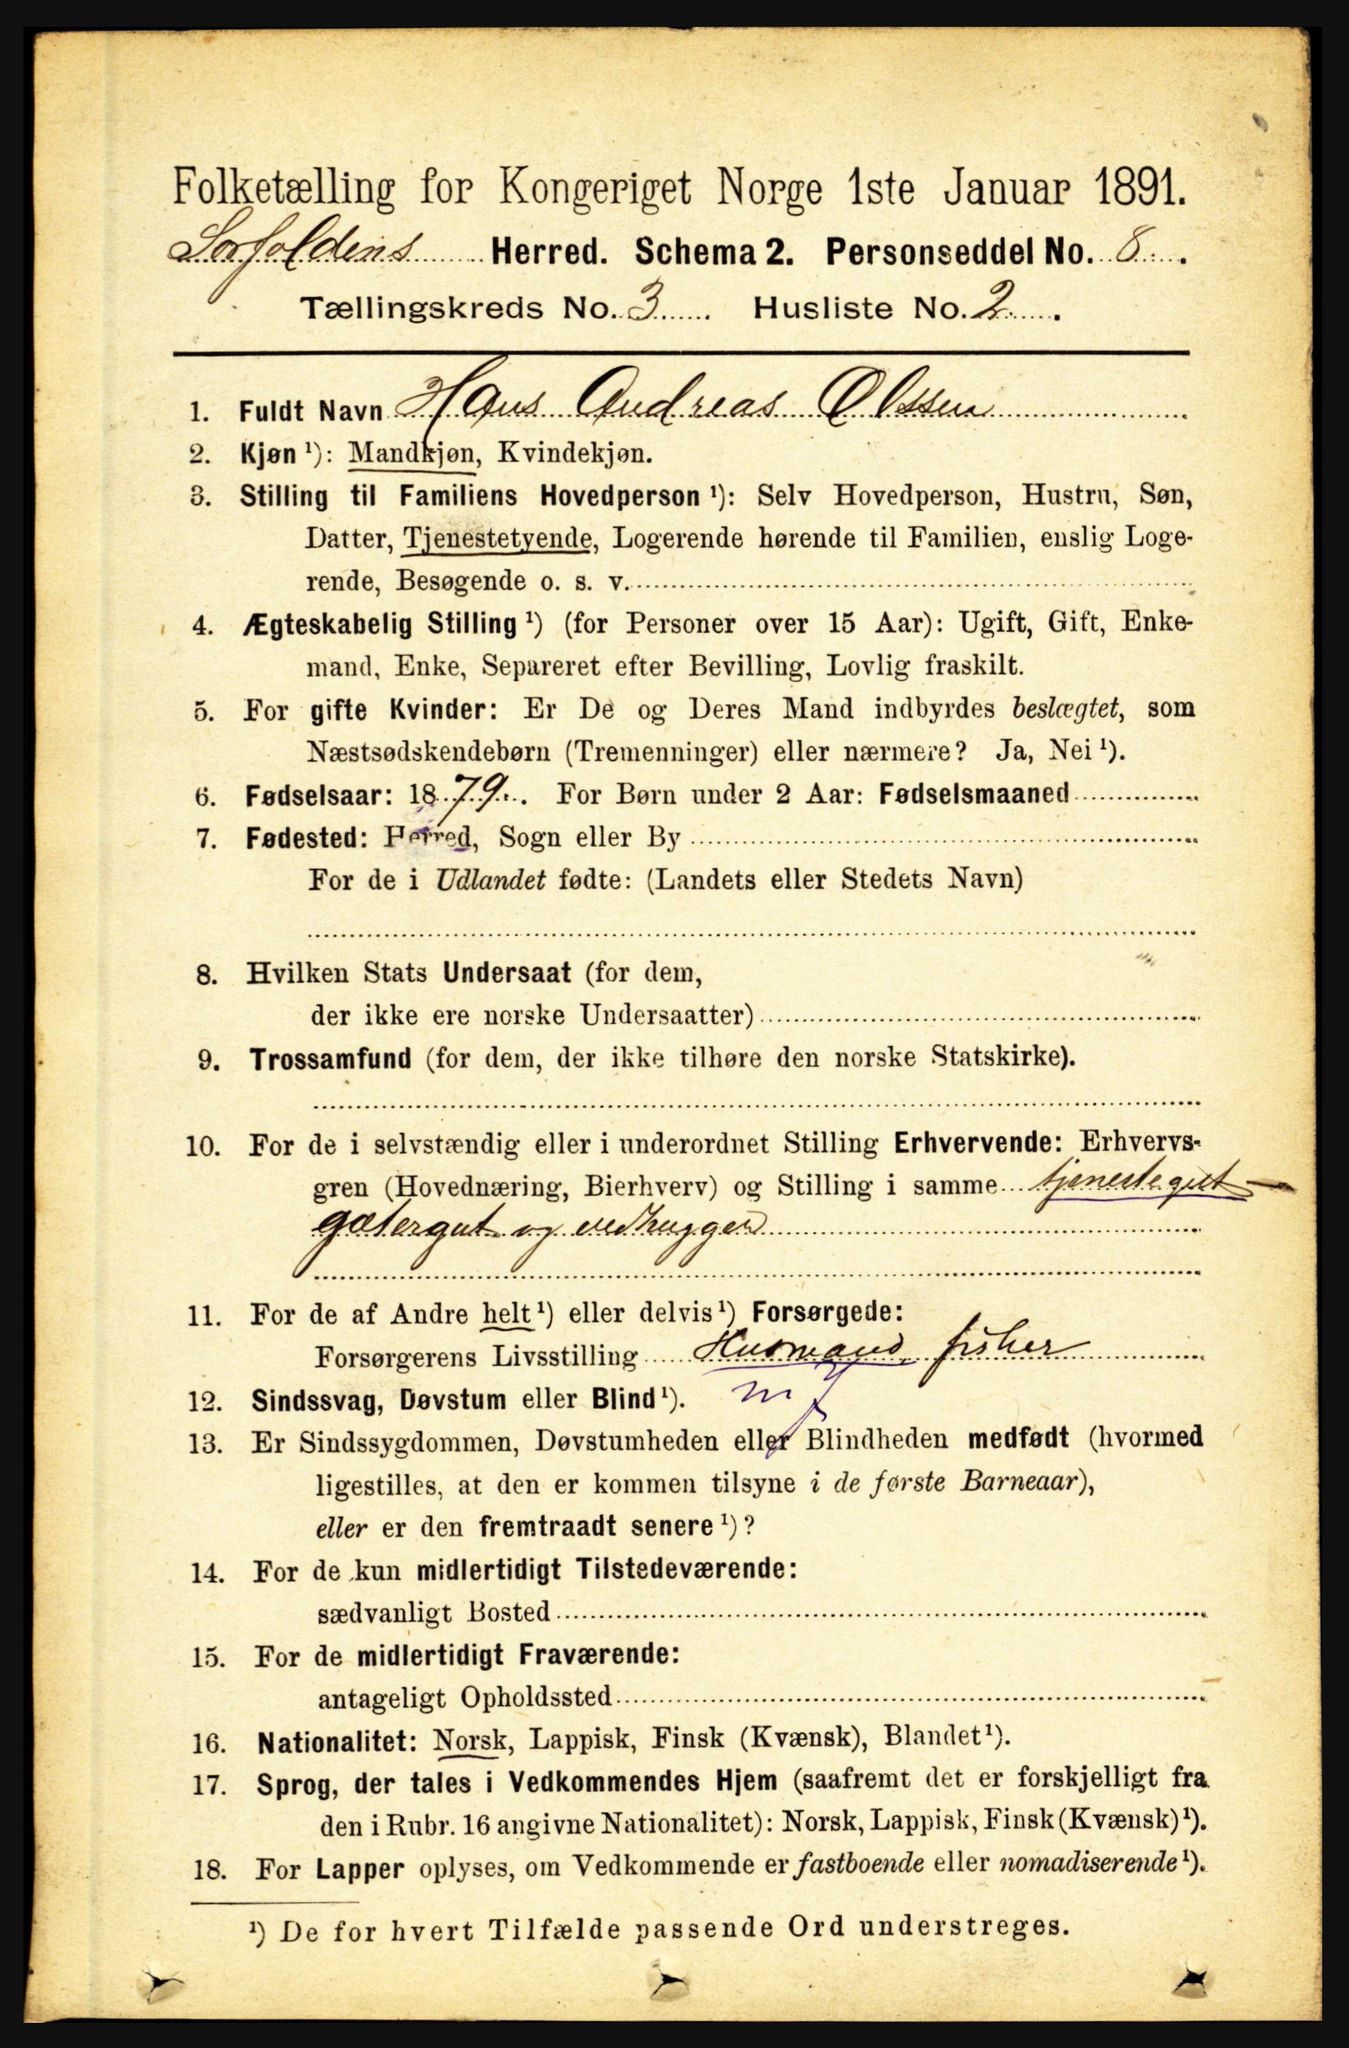 Folketælling for Kongeriget Norge 1ste Januar 1891.
Sørfoldens Herred. Schema 2. Personseddel No. 8.
Tællingskreds No. 3. Husliste No. 2.
1. Fuldt Navn Hans Andreas Olssen
2. Kjøn ¹): Mandkjøn, Kvindekjøn.
3. Stilling til Familiens Hovedperson ¹): Selv Hovedperson, Hustru, Søn,
Datter, Tjenestetyende, Logerende hørende til Familien, enslig Loge-
rende, Besøgende o. s. v.
4. Ægteskabelig Stilling ¹) (for Personer over 15 Aar): Ugift, Gift, Enke-
mand, Enke, Separeret efter Bevilling, Lovlig fraskilt.
5. For gifte Kvinder: Er De og Deres Mand indbyrdes beslægtet, som
Næstsødskendebørn (Tremenninger) eller nærmere? Ja, Nei ¹).
6. Fødselsaar: 1879. For Børn under 2 Aar: Fødselsmaaned
7. Fødested: Herred, Sogn eller By
For de i Udlandet fødte: (Landets eller Stedets Navn)
8. Hvilken Stats Undersaat (for dem,
der ikke ere norske Undersaatter)
9. Trossamfund (for dem, der ikke tilhøre den norske Statskirke).
10. For de i selvstændig eller i underordnet Stilling Erhvervende: Erhvervs-
gren (Hovednæring, Bierhverv) og Stilling i samme tjenestegut
gætergut og vedhugger
11. For de af Andre helt ¹) eller delvis ¹) Forsørgede:
Forsørgerens Livsstilling Husmand, fisker
12. Sindssvag, Døvstum eller Blind ¹).
13. Er Sindssygdommen, Døvstumheden eller Blindheden medfødt (hvormed
ligestilles, at den er kommen tilsyne i de første Barneaar),
eller er den fremtraadt senere ¹)?
14. For de kun midlertidigt Tilstedeværende:
sædvanligt Bosted
15. For de midlertidigt Fraværende:
antageligt Opholdssted
16. Nationalitet: Norsk, Lappisk, Finsk (Kvænsk), Blandet ¹).
17. Sprog, der tales i Vedkommendes Hjem (saafremt det er forskjelligt fra
den i Rubr. 16 angivne Nationalitet): Norsk, Lappisk, Finsk (Kvænsk) ¹).
18. For Lapper oplyses, om Vedkommende er fastboende eller nomadiserende ¹).
¹) De for hvert Tilfælde passende Ord understreges.